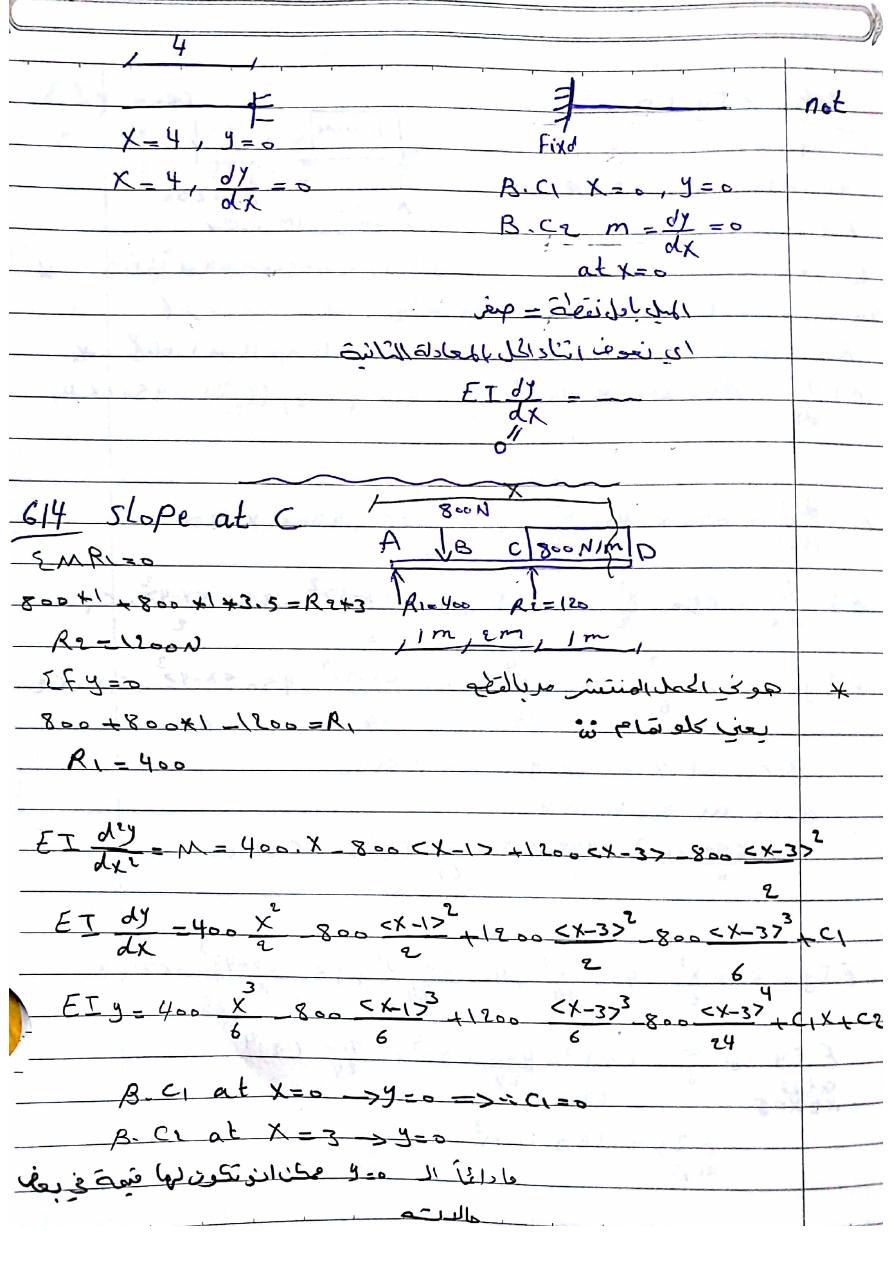 4
not
Fixd
X=4 , y=0
X=4, dy/dx = 0
B.C1 X=0, y=0
B.C2 m = dy/dx = 0
at x=0
الميل باول نقطة = صفر
اي نعوض اثناء الحل بالمعادلة الثانية
EI dy/dx = —
0
614 slope at C
X
800N
A B C 800N/m D
R1=400 R2=120
1m, 2m, 1m
ΣMR1=0
800*1 + 800*1*3.5 = R2*3
R2=1200N
Σfy=0
* هوني الحمل المنتشر مر بالقطع
800+800*1-1200=R1
يعني كلو تمام
R1=400
EI d²y/dx² = M = 400.X - 800<X-1> + 1200<X-3> - 800 <X-3>²/2
EI dy/dx = 400 X²/2 - 800 <X-1>²/2 + 1200 <X-3>²/2 - 800 <X-3>³/6 + C1
EI y = 400 X³/6 - 800 <X-1>³/6 + 1200 <X-3>³/6 - 800 <X-3>⁴/24 + C1X + C2
B.C1 at X=0 → y=0 => ∴ C1=0
B.C2 at X=3 → y=0
مادائماً الـ y=0 ممكن انو تكون لها قيمة في بعض
حالات